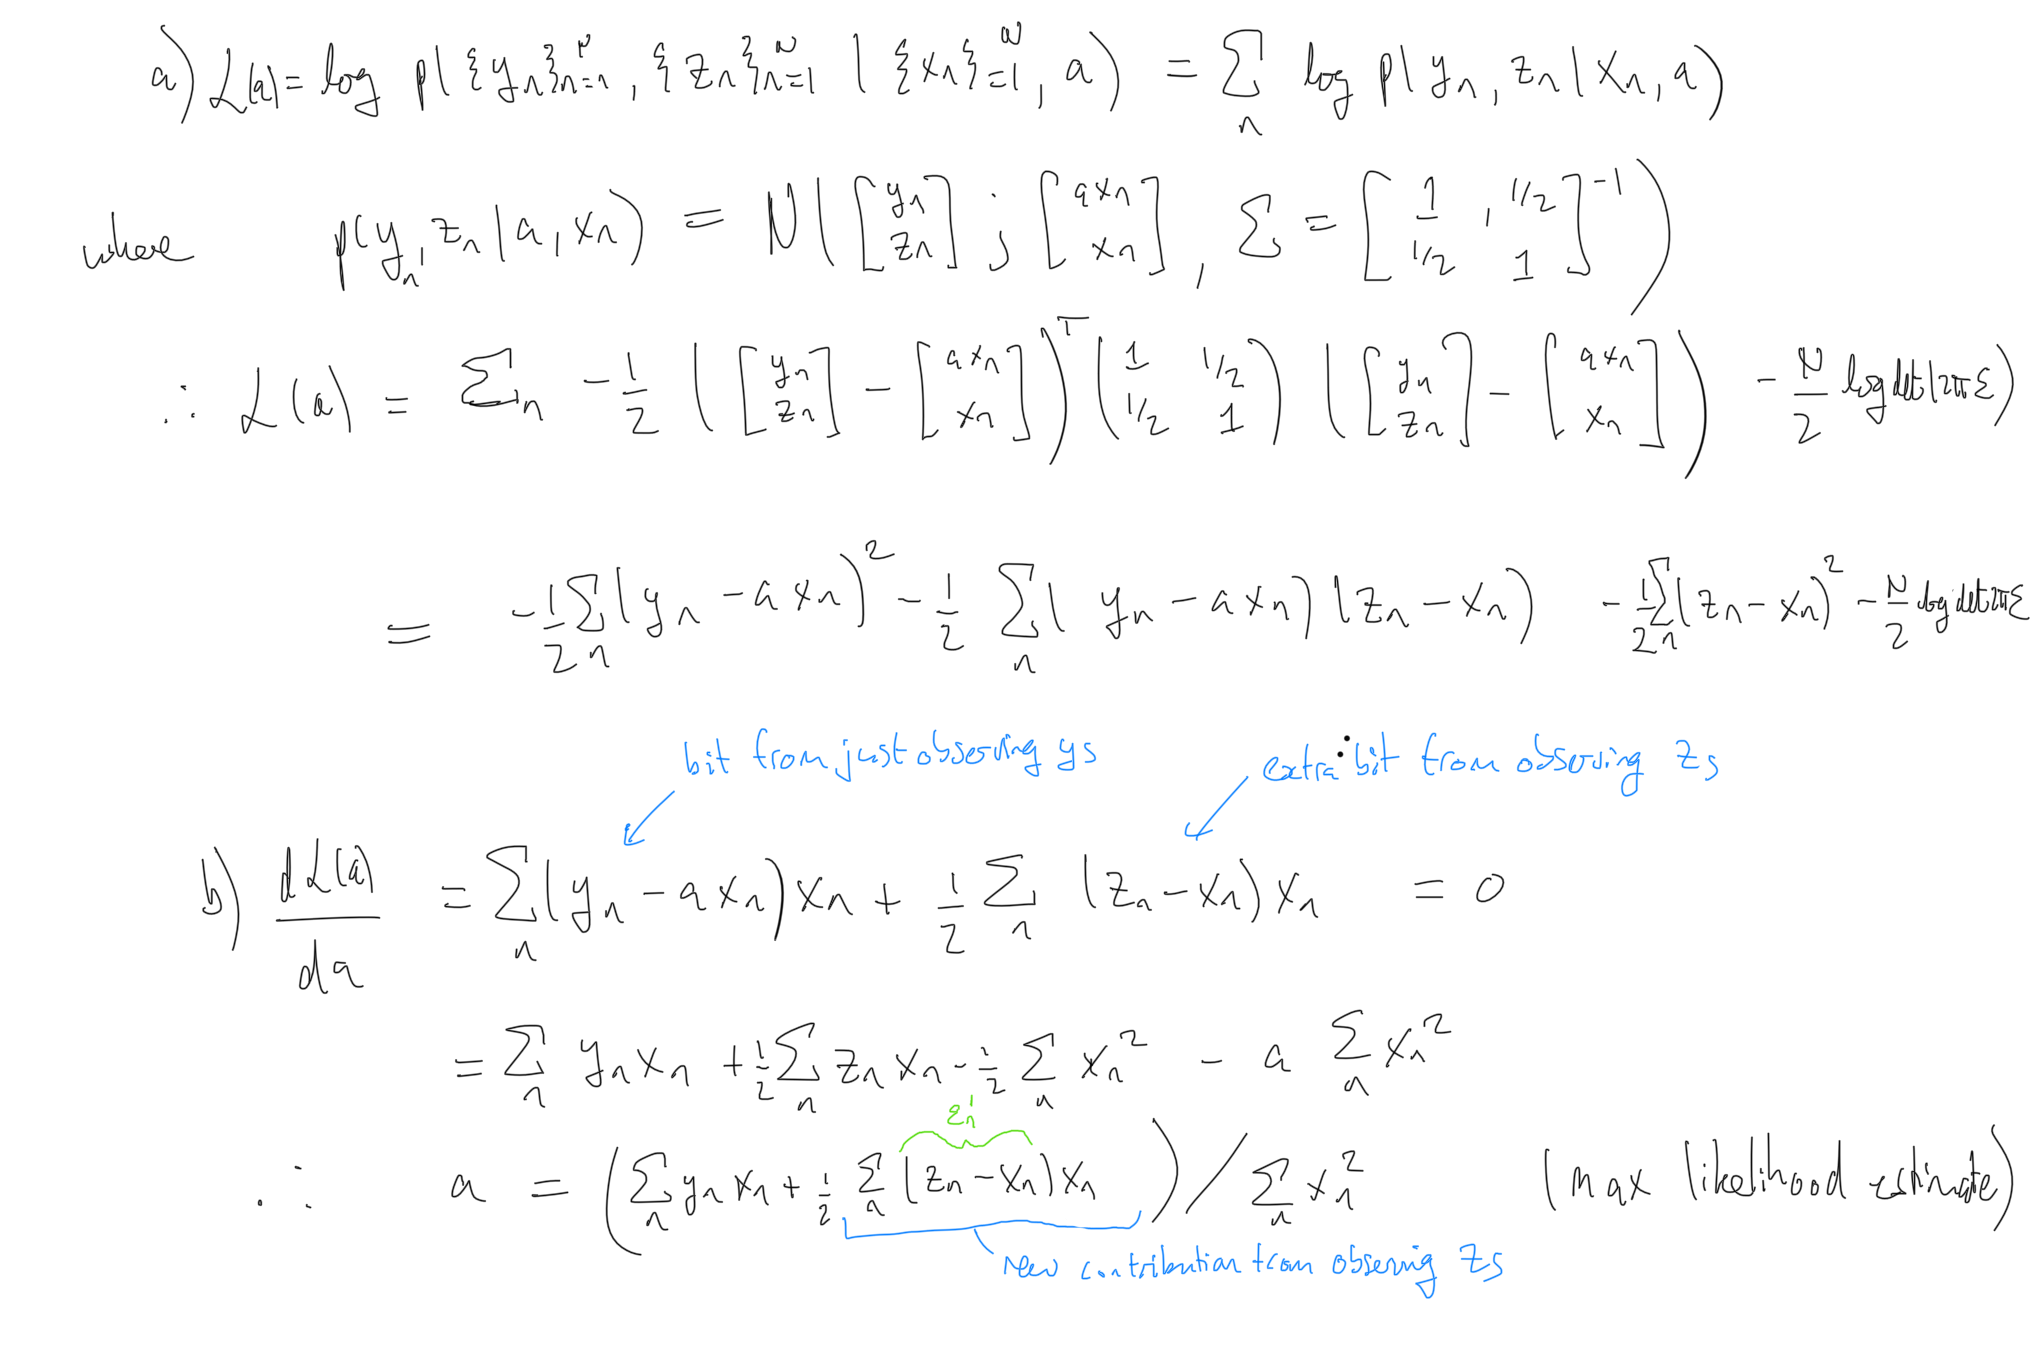 a) L(a) = log p( {yn}n=1^N , {zn}n=1^N | {xn}=1^N , a ) = Σn log p( yn, zn | xn, a )
where p( yn, zn | a, xn ) = N( [yn zn] ; [axn xn] , Σ = [1 , 1/2 1/2 1]^-1 )
∴ L(a) = Σn -1/2 ( [yn zn] - [axn xn] )^T ( 1 1/2 1/2 1 ) ( [yn zn] - [axn xn] ) - N/2 log det(2πΣ)
= -1/2 Σn ( yn - a xn )^2 - 1/2 Σn ( yn - a xn ) ( zn - xn ) - 1/2 Σn ( zn - xn )^2 - N/2 log det 2πΣ
bit from just observing ys
extra bit from observing zs
b) dL(a)/da = Σn ( yn - a xn ) xn + 1/2 Σn ( zn - xn ) xn = 0
= Σn yn xn + 1/2 Σn zn xn - 1/2 Σn xn^2 - a Σn xn^2
zn'
∴ a = ( Σn yn xn + 1/2 Σn ( zn - xn ) xn ) / Σn xn^2 (max likelihood estimate)
new contribution from observing zs